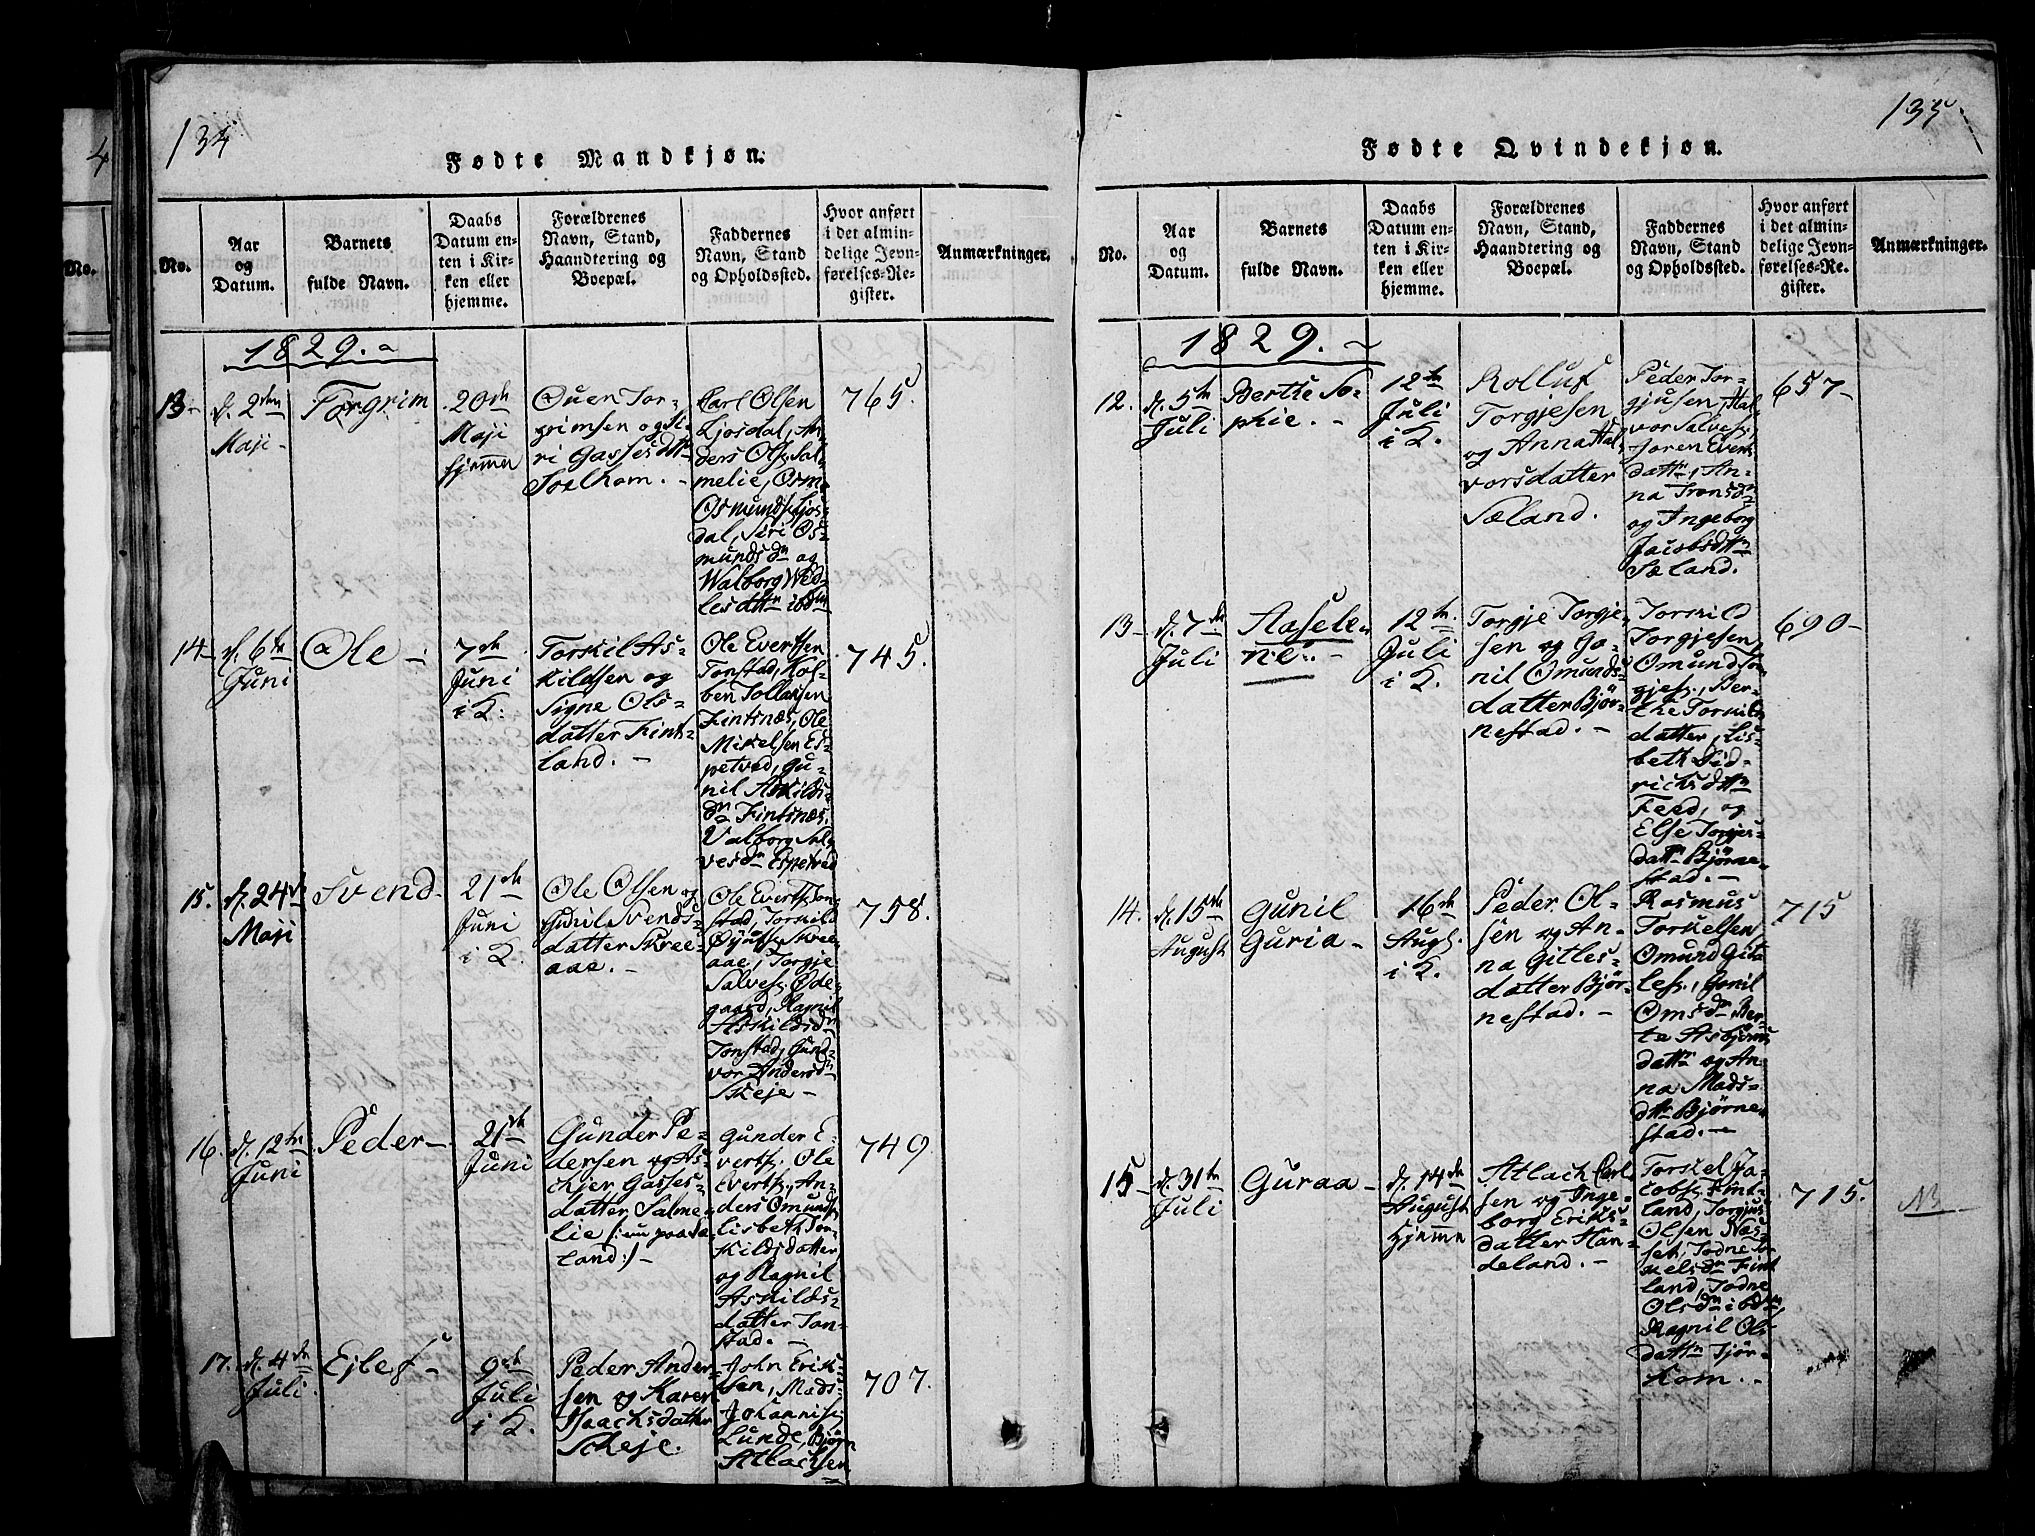 134
Fødte Mandkjøn.
No.
Aar
og
Datum.
Barnets
fulde Navn.
Daabs
Datum en-
ten i Kir-
ken eller
hjemme.
Forældrenes
Navn, Stand,
Haandtering og
Boepæl.
Faddernes
Navn, Stand
og Opholdssted.
Hvor anført
i det almin-
delige Jevn-
førelses-Re-
gister.
Anmærkninger.
1829.
13-
d. 2den
Maji-
Torgrim
20de
Maji
hjemme
Ouen Tor-
grimsen og Si-
ri Gassesdttr
Soelhom. -
Carl Olsen
Ljosdal, An-
ders Ols. Sal-
melie, Osm.
Osmunds. Ljos-
dal, Siri Os-
mundsdn og
Walborg Wed-
lesdttr ibdm
765.
14-
d. 6te
Juni
Ole -
7de
Juni
i K.
Torkil As-
kildsen og
Signe Ols-
datter Fint-
land. -
Ole Evertsen
Tonstad, Kol-
ben Tollagsen
Fintsnæs, Ole
Mikelsen Es-
petved, Gu-
nil Askilds-
dn Fintsnæs,
Valborg Sal-
vesdn Espetved
745.
15.
d. 24de
Maji
Svend.
21de
Juni
i K.
Ole Olsen og
Gunil Svends-
datter Skree-
aae. -
Ole Everts. Ton-
stad, Torkild
Øjuls. Skree-
aae, Torgje
Salves. Øde-
gaard, Ragnil
Askildsdn
Tonstad, Gund-
vor Andersdn
Skeje -
758.
16.
d. 12te
Juni
Peder-
21de
Juni
Gunder Pe-
dersen og As-
kjer Gasses-
datter Salme-
lie
land:/-
Gunder E-
verts. Ole
Everts., An-
ders Omunds.
Lisbeth Tor-
kildsdatter,
og Ragnil
Askilds-
datter Ton-
stad. -
749
17.
d. 4de
Juli.
Ejlef -
9de
Juli
i K.
Peder Ander-
sen og Karen
Isaachsdatter
Skeje.
John Erik-
sen, Mads
Johannis.
Lunde, Bjørn
Atlachsen
707.
135
Fødte Qvindekjøn.
No.
Aar
og
Datum.
Barnets
fulde Navn.
Daabs
Datum en-
ten i Kir-
ken eller
hjemme.
Forældrenes
Navn, Stand,
Haandtering og
Boepæl.
Faddernes
Navn, Stand
og Opholdssted.
Hvor anført
i det almin-
delige Jevn-
førelses-Re-
gister.
Anmærkninger.
1829.
12.
d. 5te
Juli
Berthe So-
phie. -
12te
Juli
i K.
Rolluf
Torgjesen
og Anna Hal-
vorsdatter
Sæland.
Peder Tor-
gjusen, Hal-
vor Salves.
Joren Everts
dattr, An-
na Tronsdn
og Ingeborg
Jacobsdttr
Sæland.
657-
13-
d. 7de
Juli
Aasele-
ne. -
12te
Juli
i K.
Torgje Torgje-
sen og Go-
nil Omunds-
datter Bjør-
nestad. -
Torkild
Torgjesen,
Omund Tor-
gjes., Ber-
the Torkils
datter, Lis-
beth Did-
richsdttr
Feed, og
Else Torgjes-
dattr Bjørne-
stad. -
690-
14.
d. 15de
August
Gunil
Guria -
16de
Augs.
i K.
Peder Ol-
sen og An-
na Gitles-
datter Bjør-
nestad. -
Rasmus
Torkelsen
Omund Git-
les., Gonil
Omsdn, Ber-
te Asbjørns
dattr og An-
na Mads-
dttr Bjørne-
stad. -
715
15-
d. 31te
Juli
Guraa -
d. 14de
August
hjemme
Atlach Carl-
sen og Inge-
borg Eriks-
datter Han-
deland. -
Torkel Ja-
cobs. Fint-
land, Torgjus
Olsen Næs-
set, Todne Tor-
kelsdn Fint-
land, Todne
Olsdn ibdm,
Ragnil Ols
dattr Tjør-
hom. -
715.
NB